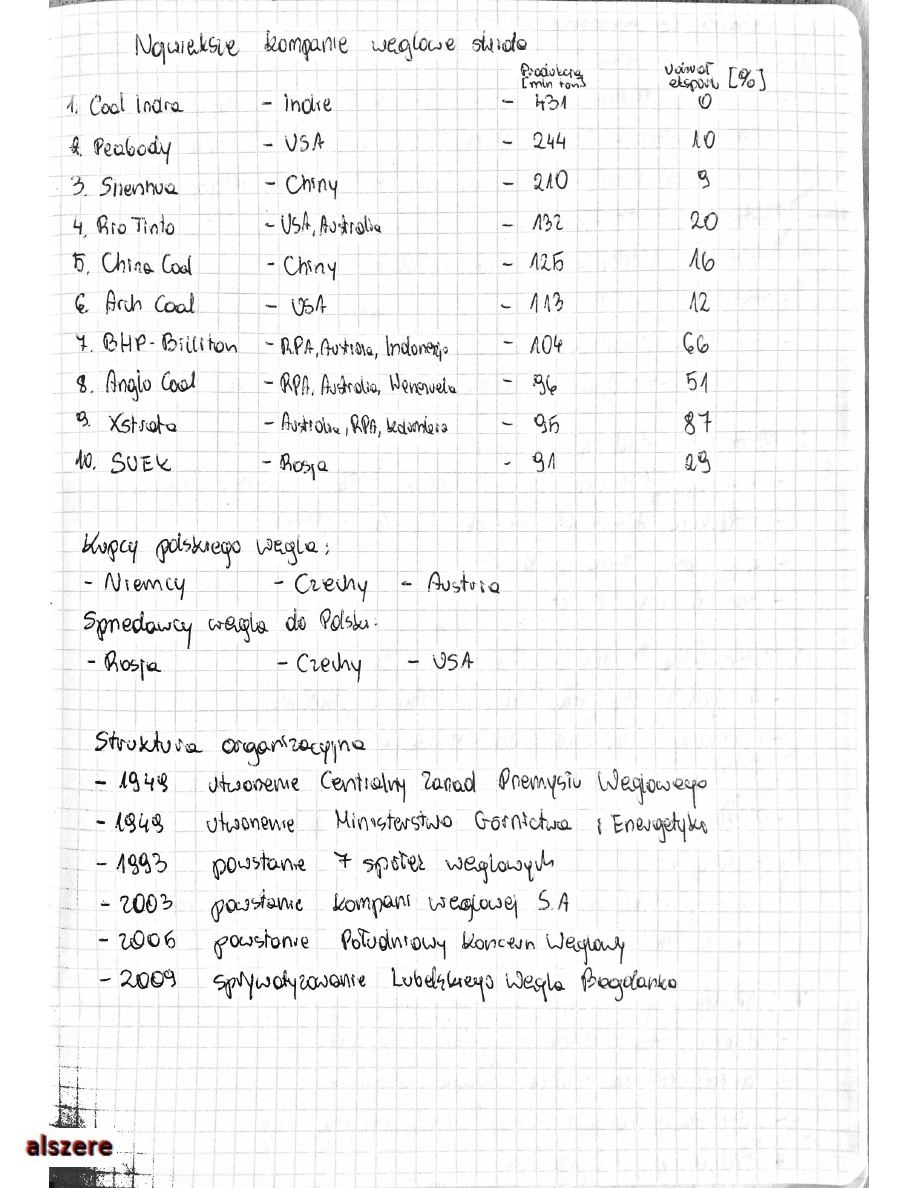 Największe kompanie węglowe świata
Produkcja [mln ton] Udział eksport [%]
1. Coal India - Indie - 431 0
2. Peabody - USA - 244 10
3. Shenhua - Chiny - 210 9
4. Rio Tinto - USA, Australia - 132 20
5. China Coal - Chiny - 125 16
6. Arch Coal - USA - 113 12
7. BHP-Billiton - RPA, Australia, Indonezja - 104 66
8. Anglo Coal - RPA, Australia, Wenezuela - 96 51
9. Xstrata - Australia, RPA, Kolumbia - 95 87
10. SUEK - Rosja - 91 29
Kupcy polskiego węgla:
- Niemcy - Czechy - Austria
Sprzedawcy węgla do Polski:
- Rosja - Czechy - USA
Struktura organizacyjna
- 1949 utworzenie Centralny Zarząd Przemysłu Węglowego
- 1949 utworzenie Ministerstwo Górnictwa i Energetyki
- 1993 powstanie 7 spółek węglowych
- 2003 powstanie kompani węglowej S.A
- 2006 powstanie Południowy Koncern Węglowy
- 2009 sprywatyzowanie Lubelskiego Węgla Bogdanka
alszere